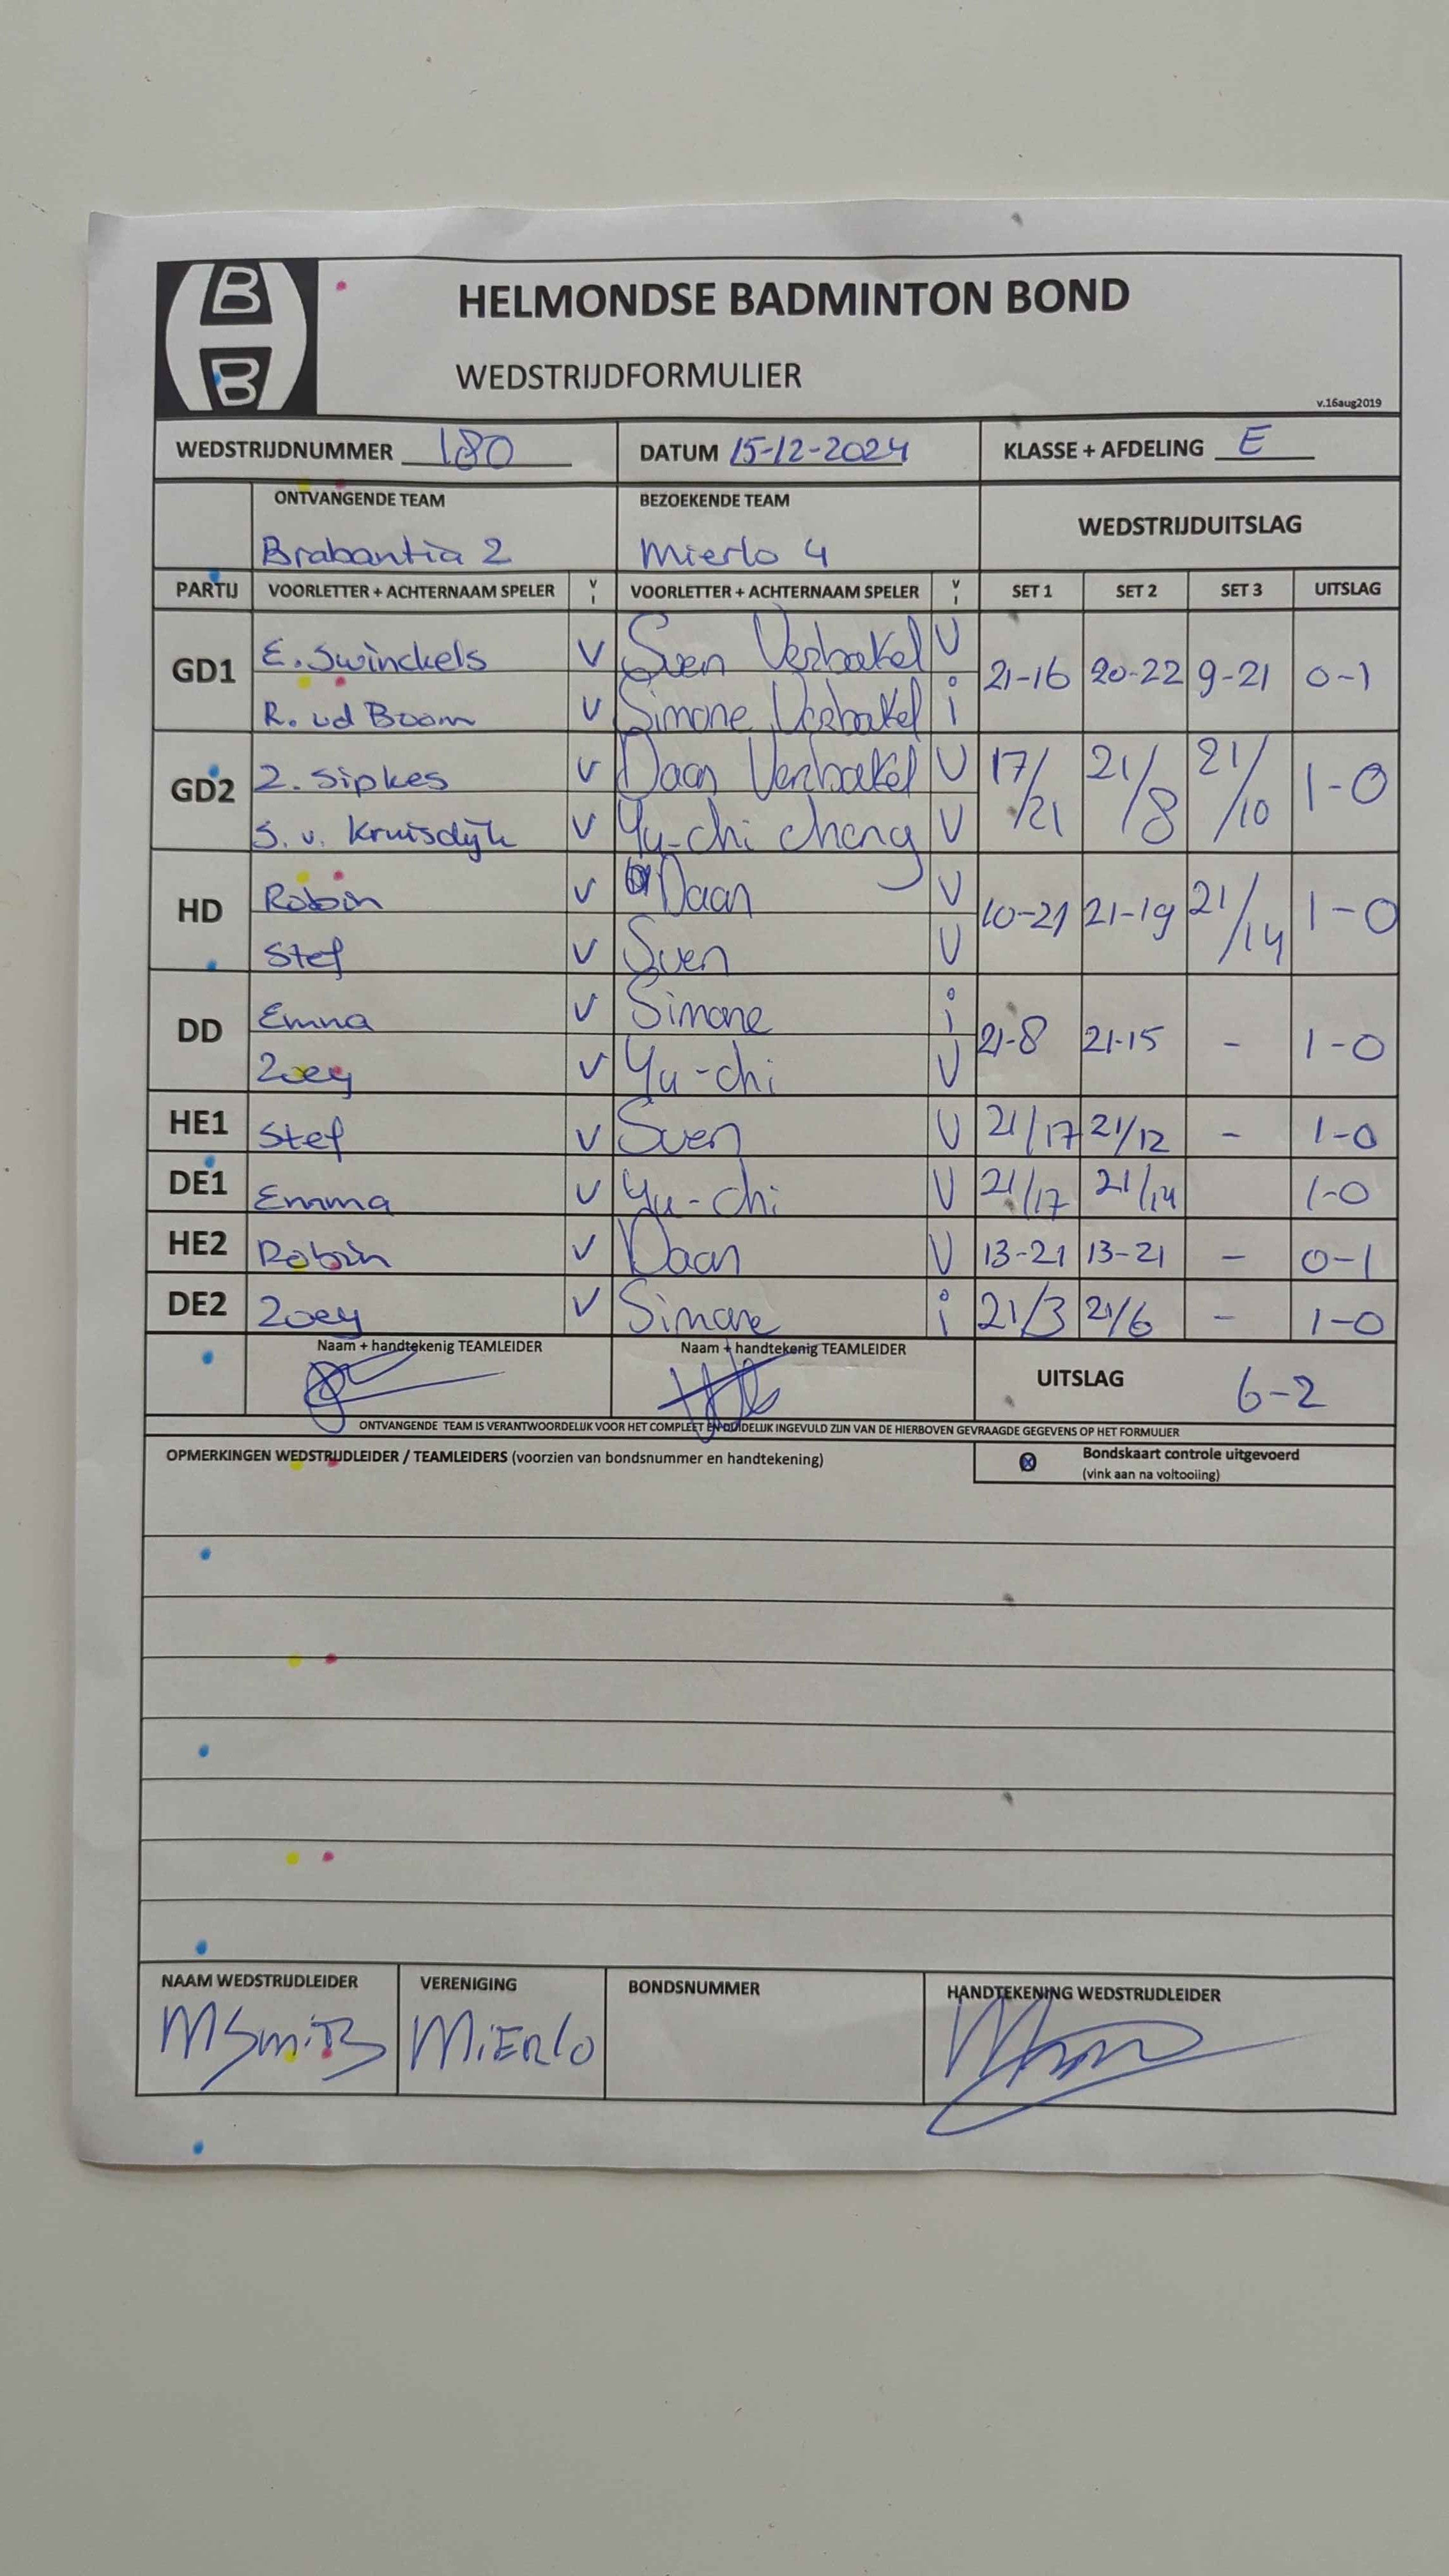 B
B
HELMONDSE BADMINTON BOND
WEDSTRIJDFORMULIER
v.16aug2019
WEDSTRIJDNUMMER 180 DATUM 15-12-2024 KLASSE + AFDELING E
ONTVANGENDE TEAM BEZOEKENDE TEAM WEDSTRIJDUITSLAG
Brabantia 2 Mierlo 4
PARTIJ VOORLETTER + ACHTERNAAM SPELER V I VOORLETTER + ACHTERNAAM SPELER V I SET 1 SET 2 SET 3 UITSLAG
GD1 E. Swinckels V Sven Verbakel V 21-16 20-22 9-21 0-1
R. vd Boom V Simone Verbakel i
GD2 Z. Sipkes V Daan Verbakel V 17/21 21/8 21/10 1-0
S. v. Kruisdijk V Yu-chi cheng V
HD Robin V Daan V 10-21 21-19 21/14 1-0
Stef V Sven V
DD Emma V Simone i 21-8 21-15 - 1-0
Zoey V Yu-chi V
HE1 Stef V Sven V 21/17 21/12 - 1-0
DE1 Emma V Yu-chi V 21/17 21/14 1-0
HE2 Robin V Daan V 13-21 13-21 - 0-1
DE2 Zoey V Simone i 21/3 21/6 - 1-0
Naam + handtekenig TEAMLEIDER Naam + handtekenig TEAMLEIDER UITSLAG 6-2
ONTVANGENDE TEAM IS VERANTWOORDELIJK VOOR HET COMPLEET EN DUIDELIJK INGEVULD ZIJN VAN DE HIERBOVEN GEVRAAGDE GEGEVENS OP HET FORMULIER
OPMERKINGEN WEDSTRIJDLEIDER / TEAMLEIDERS (voorzien van bondsnummer en handtekening) Bondskaart controle uitgevoerd
(vink aan na voltooiing)
NAAM WEDSTRIJDLEIDER VERENIGING BONDSNUMMER HANDTEKENING WEDSTRIJDLEIDER
MSmits MiERlO